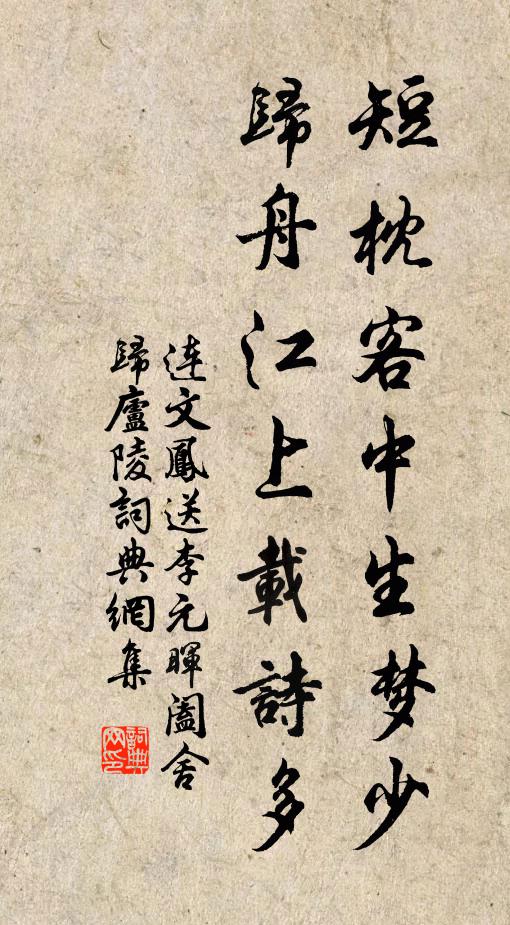 短枕客中生梦少
歸舟江上載詩多
連文鳳送李元暉闔舍
歸廬陵詞典網集
詞典网印